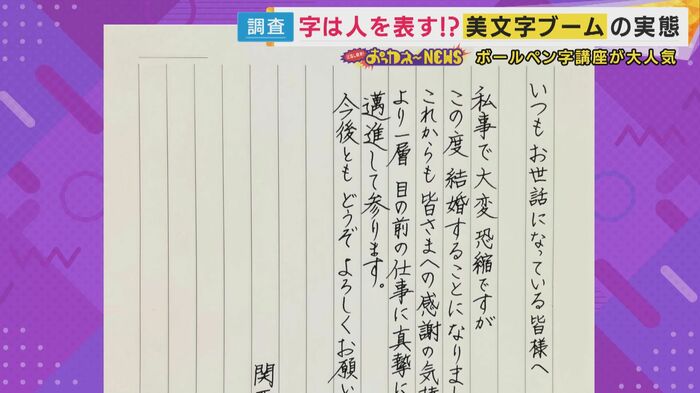 調査
字は人を表す!?美文字ブームの実態
おっかえ〜NEWS
ボールペン字講座が大人気
いつもお世話になっている皆様へ
私事で大変恐縮ですが
この度 結婚することになりまし
これからも皆さまへの感謝の気持
より一層 目の前の仕事に真摯に
邁進して参ります。
今後とも どうぞ よろしくお願い
関